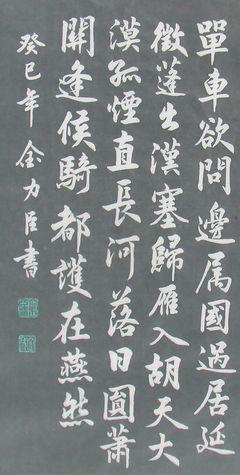 單車欲問邊属國過居延
徵蓬出漢塞歸雁入胡天大
漠孤煙直長河落日圓蕭
關逢候騎都護在燕然
癸巳年 余力臣書